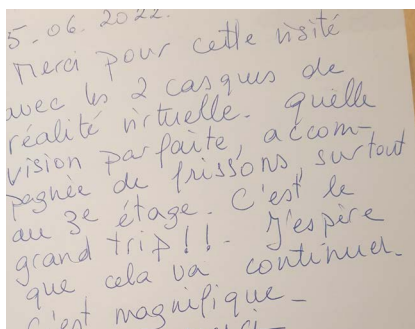 5.06.2022.
Merci pour cette visite
avec les 2 casques de
réalité virtuelle. quelle
vision parfaite, accom-
pagnée de frissons, surtout
au 3e étage. C'est le
grand trip!!. J'espère
que cela va continuer.
C'est magnifique_